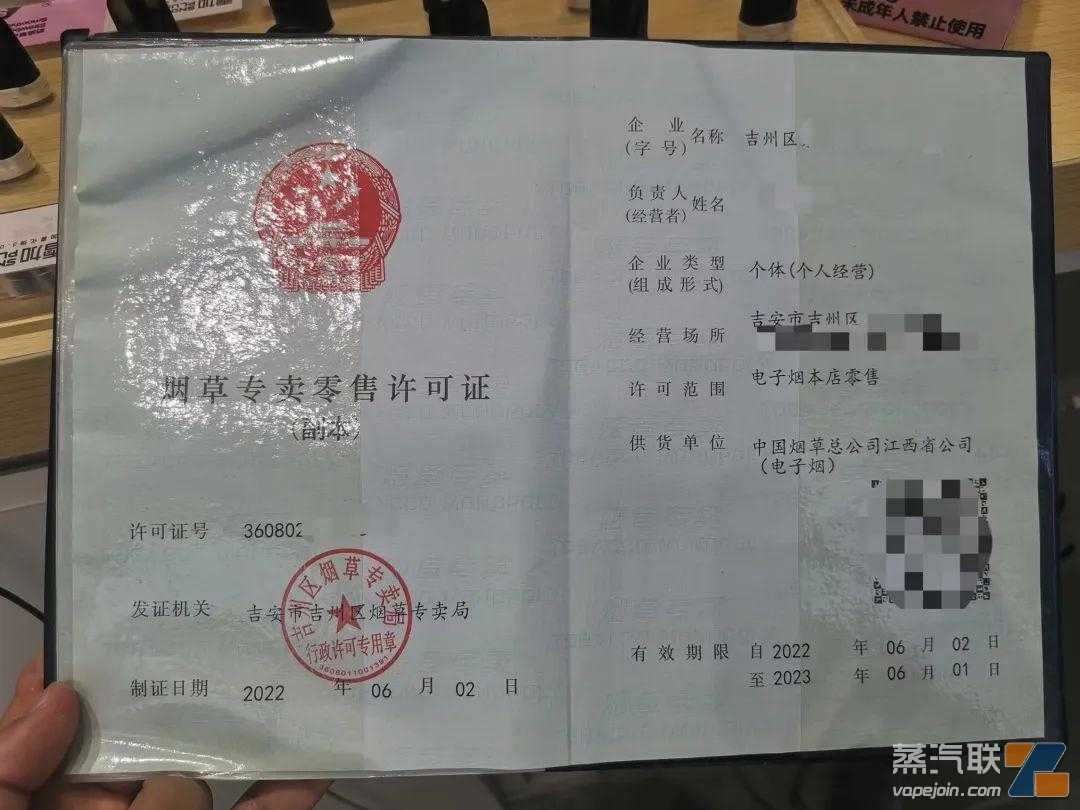 未成年人禁止使用
烟草专卖零售许可证
(副本)
许可证号 360802
发证机关 吉安市吉州区烟草专卖局
吉州区烟草专卖局
行政许可专用章
3608011001391
制证日期 2022 年 06 月 02 日
企业名称 吉州区
(字号)
负责人姓名
(经营者)
企业类型 个体(个人经营)
(组成形式)
经营场所 吉安市吉州区
许可范围 电子烟本店零售
供货单位 中国烟草总公司江西省公司
(电子烟)
有效期限 自 2022 年 06 月 02 日
至 2023 年 06 月 01 日
蒸汽联
vapejoin.com